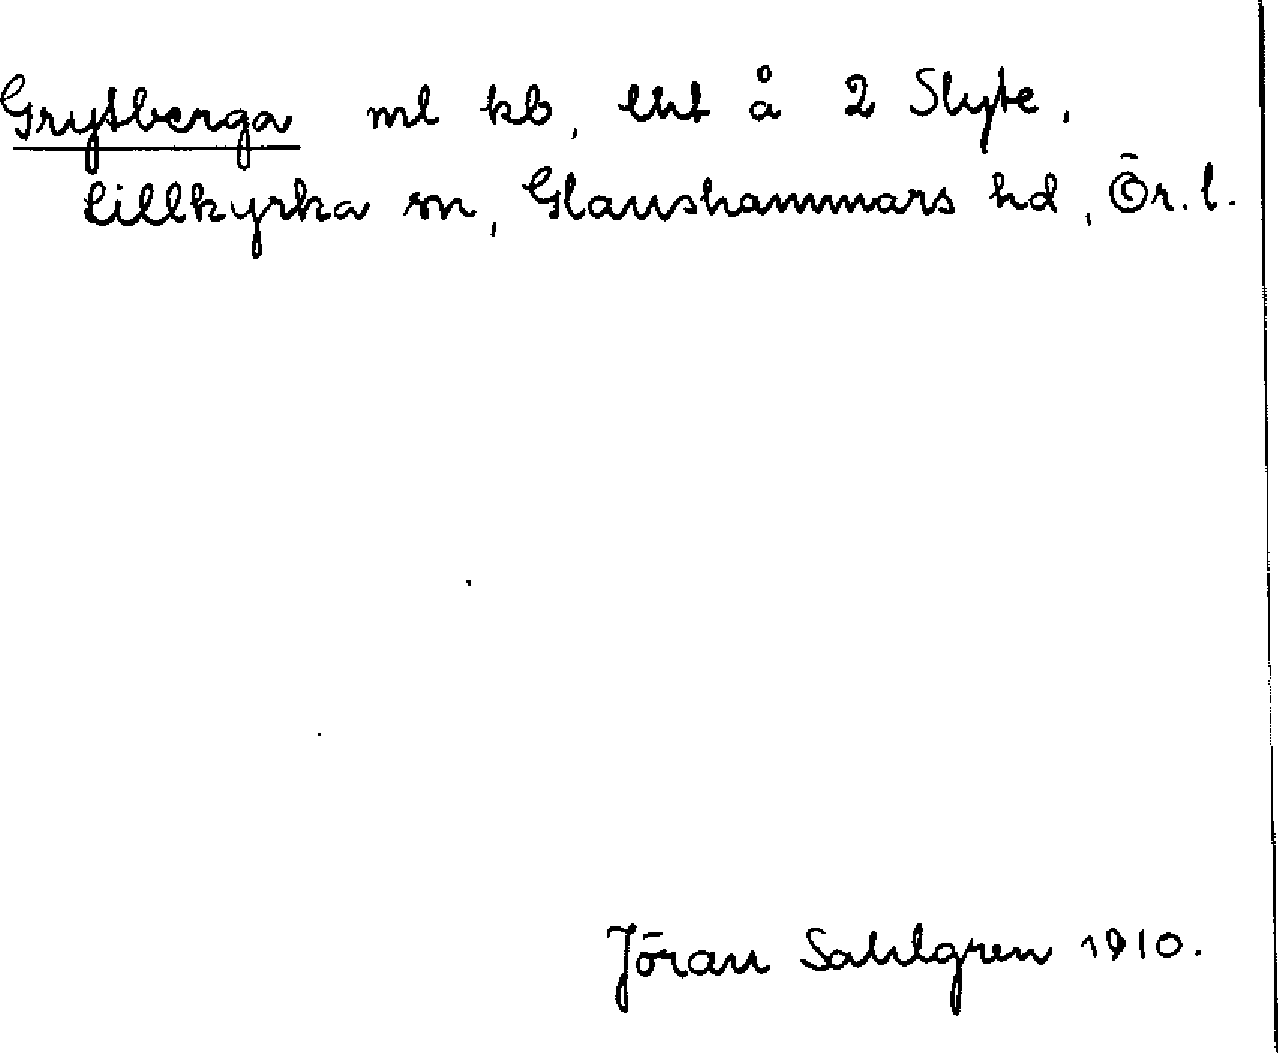 Grytberga ml kb, lht å 2 Slyte.
Lillkyrka sn, Glanshammars hd, Ör. l.
Jöran Sahlgren 1910.